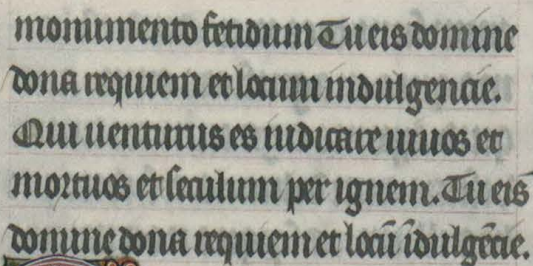 monumento fetidum Tu eis domine
dona requiem et locum indulgencie.
Qui uenturus es iudicare uiuos et
mortuos et seculum per ignem. Tu eis
domine dona requiem et locū īdulgēcie.